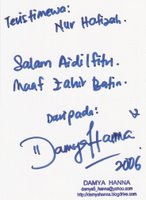 Teristimewa:
Nur Hafizah.
Salam Aidilfitri.
Maaf Zahir Batin.
Daripada:
"Damya Hanna
2006
DAMYA HANNA
damya8_hanna@yahoo.com
http://damyahanna.blogdrive.com